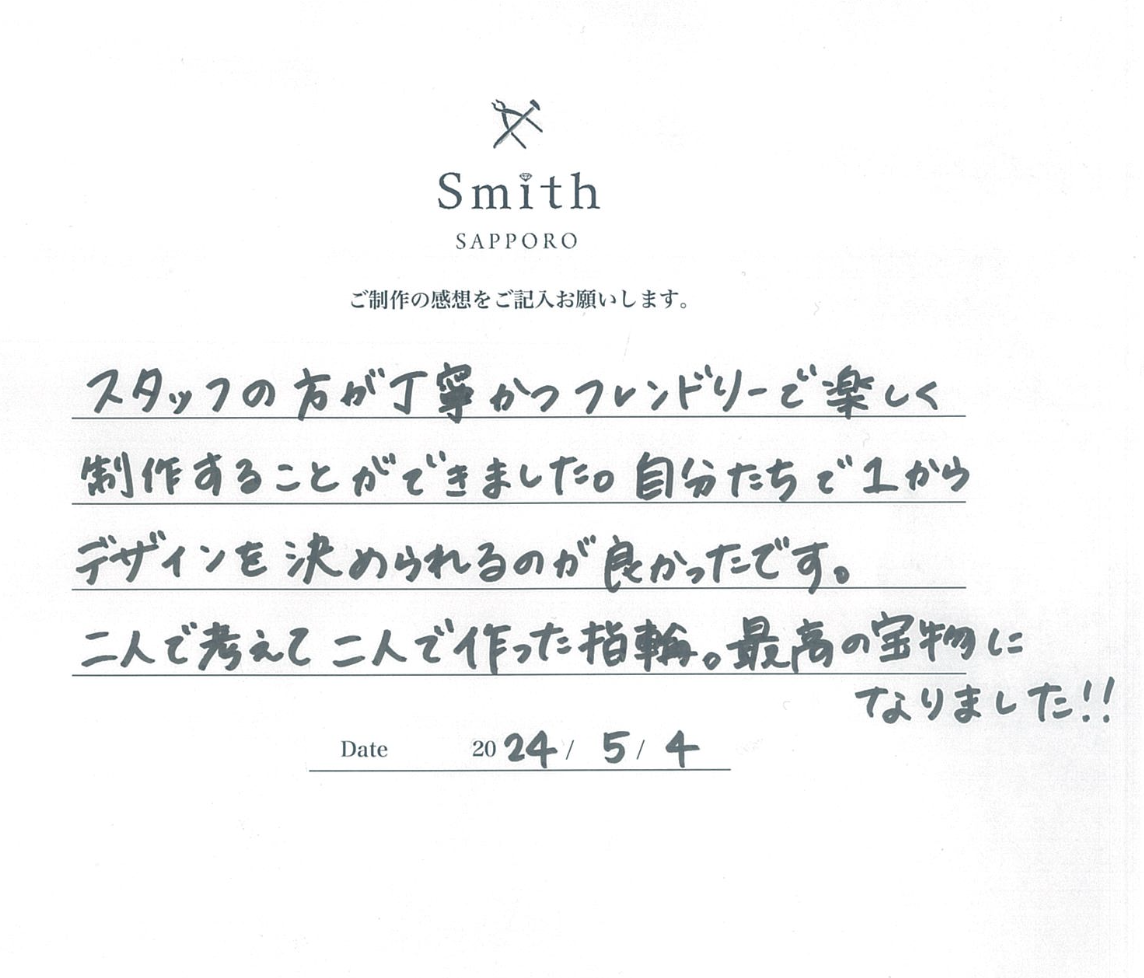 Smith
SAPPORO
ご制作の感想をご記入お願いします。
スタッフの方が丁寧かつフレンドリーで楽しく
制作することができました。自分たちで1から
デザインを決められるのが良かったです。
二人で考えて二人で作った指輪。最高の宝物に
なりました!!
Date 2024/ 5/ 4